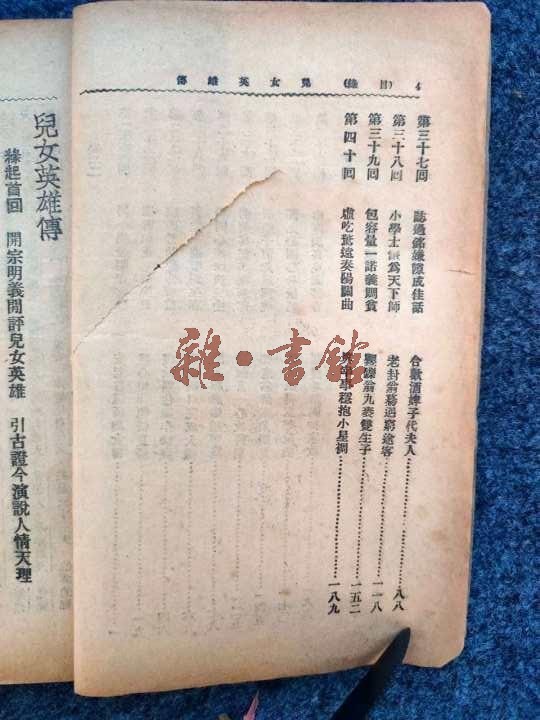 4 (目錄) 兒女英雄傳
第三十七回 誌過銘嫌隙成佳話 合歡酒婢子代夫人 八八
第三十八回 小學士儼爲天下師 老封翁驀遇窮途客 一一八
第三十九回 包容量一諾義賙貧 矍鑠翁九袠雙生子 一五二
第四十回 虛吃驚遠奏陽關曲 抱小星裯 一八九
雜·書館
兒女英雄傳
緣起首回 開宗明義閒評兒女英雄 引古證今演說人情天理